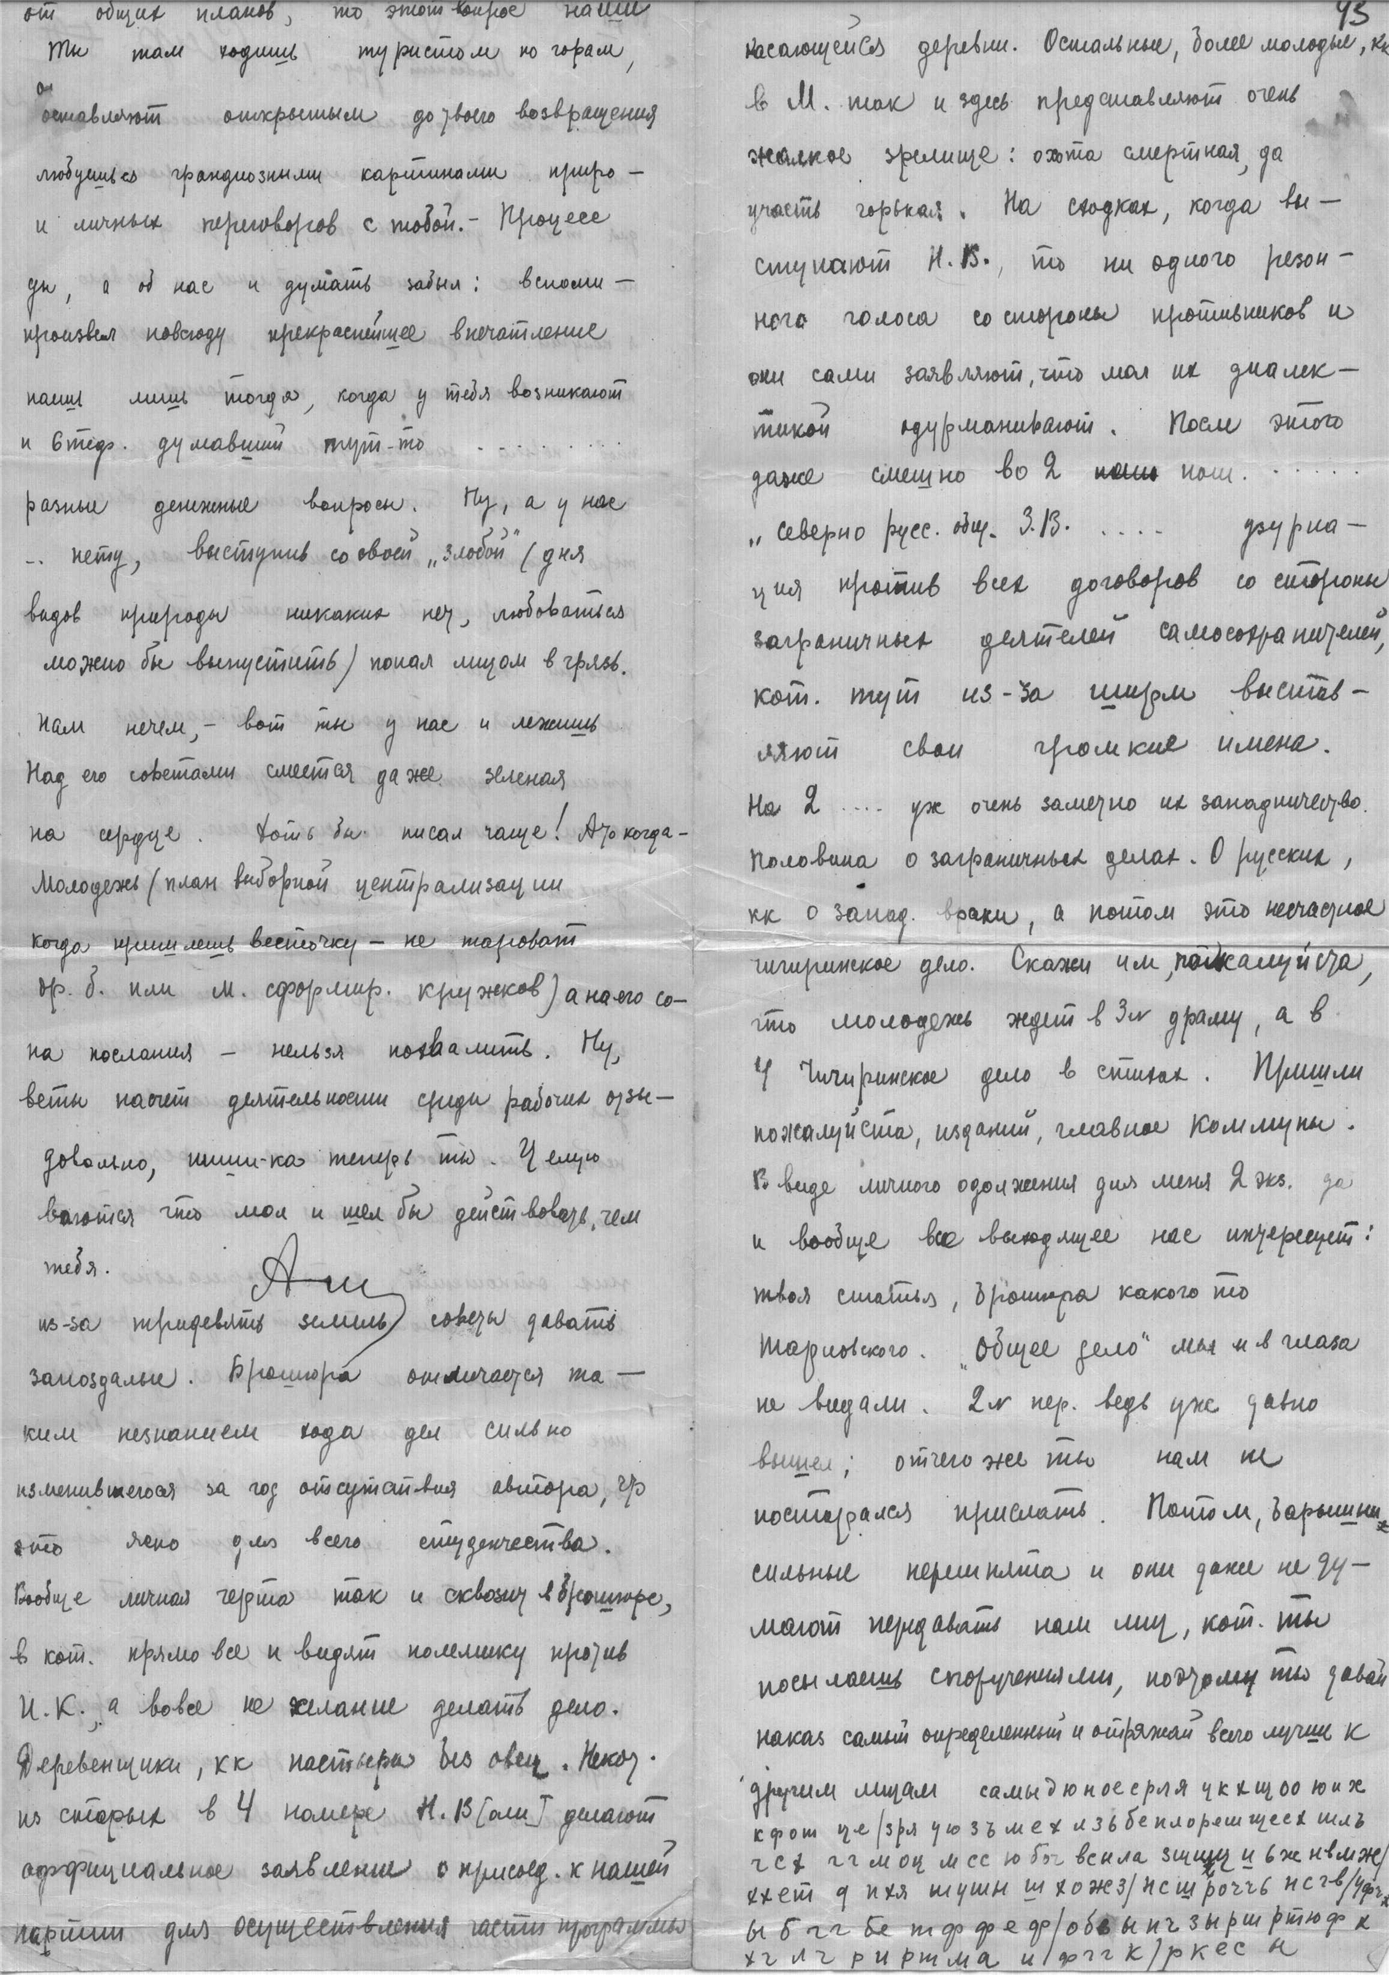 от общих планов, то этот вопрос наши
Ты там ходишь туристом по горам,
оставляют открытым до твоего возвращения
любуешься грандиозными картинами приро—
и личных переговоров с тобой. – Процесс
ды, а об нас и думать забыл: вспоми—
произвел повсюду прекраснейшее впечатление
наешь лишь тогда, когда у тебя возникают
и бтер. думавший тут-то . . . . . . . . .
разные денежные вопросы. Ну, а у нас
.. нету, выступив со своей „злобой" (дня
видов природы никаких нет, любоваться
можно бы выпустить) попал лицом в грязь.
нам нечем, – вот ты у нас и лежишь
Над его советами смеется даже зеленая
на сердце. Хоть бы писал чаще! А то когда–
молодежь (план выборной централизации
когда пришлешь весточку – не тароват
бр. б. или м. сформир. кружков) а на его со—
на послания – нельзя похвалить. Ну,
веты насчет деятельности среди рабочих отзы—
довольно, пиши-ка теперь ты. Целую
ваются что мол и шел бы действовать, чем
тебя.
из-за тридевять земель) советы давать
запоздалые. Брошюра отличается та—
ким незнанием хода дел сильно
изменившегося за год отсутствия автора, что
это ясно для всего студенчества.
Вообще личная черта так и сквозит в брошюре,
в кот. прямо все и видят полемику против
И. К., а вовсе не желание делать дело.
Деревенщики, кк пастыри без овец. Некот.
из старых в 4 номере Н. В[оли] делают
оффициальное заявление о присоед. к нашей
партии для осуществления части программы
93
касающейся деревни. Остальные, более молодые, кк
в М. так и здесь представляют очень
жалкое зрелище: охота смертная, да
участь горькая. На сходках, когда вы—
ступают Н. В., то ни одного резон—
ного голоса со стороны противников и
они сами заявляют, что мол их диалек—
тикой одурманивают. После этого
даже смешно во 2 ном. . . . . . .
„Северно русс. общ. З. В. . . . . дзурна—
ция против всех договоров со стороны
заграничных деятелей самосохранителей,
кот. тут из-за ширм выстав—
ляют свои громкие имена.
На 2 .... уж очень заметно их западничество.
Половина о заграничных делах. О русских,
кк о запад. враки, а потом это несчастное
чигиринское дело. Скажи им, пожалуйста,
что молодежь ждет в 3№ драму, а в
4 Чигиринское дело в стихах. Пришли
пожалуйста, изданий, главное Коммуны.
В виде личного одолжения для меня 2 экз. да
и вообще все выходящее нас интересует:
твоя статья, брошюра какого то
Тарновского. „Общее дело" мы и в глаза
не видали. 2№ пер. ведь уж давно
вышел; отчего же ты нам не
постарался прислать. Потом, барышни
сильные перепнята и они даже не ду—
мают передавать нам лиц, кот. ты
посылаешь с поручениями, поэтому ты давай
наказ самый определенный и отряжай всего лучше к
другим лицам